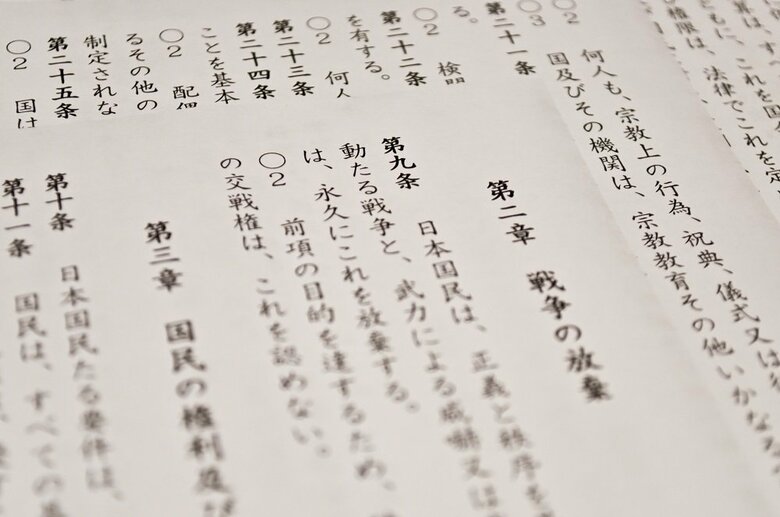 権限は、法律でこれを定
○2 何人も、宗教上の行為、祝典、儀式又は
○3 国及びその機関は、宗教教育その他いかなる
第二十一条
る。
○2 検
第二十二条
を有する。
○2 何人
第二十三条
第二十四条
ことを基本
○2 配偶
るその他の
制定されな
第二十五条
○2 国は
第二章 戦争の放棄
第九条 日本国民は、正義と秩序を
動たる戦争と、武力による威嚇又は
は、永久にこれを放棄する。
○2 前項の目的を達するため、
の交戦権は、これを認めない。
第三章 国民の権利及び
第十条 日本国民たる要件は、
第十一条 国民は、すべての